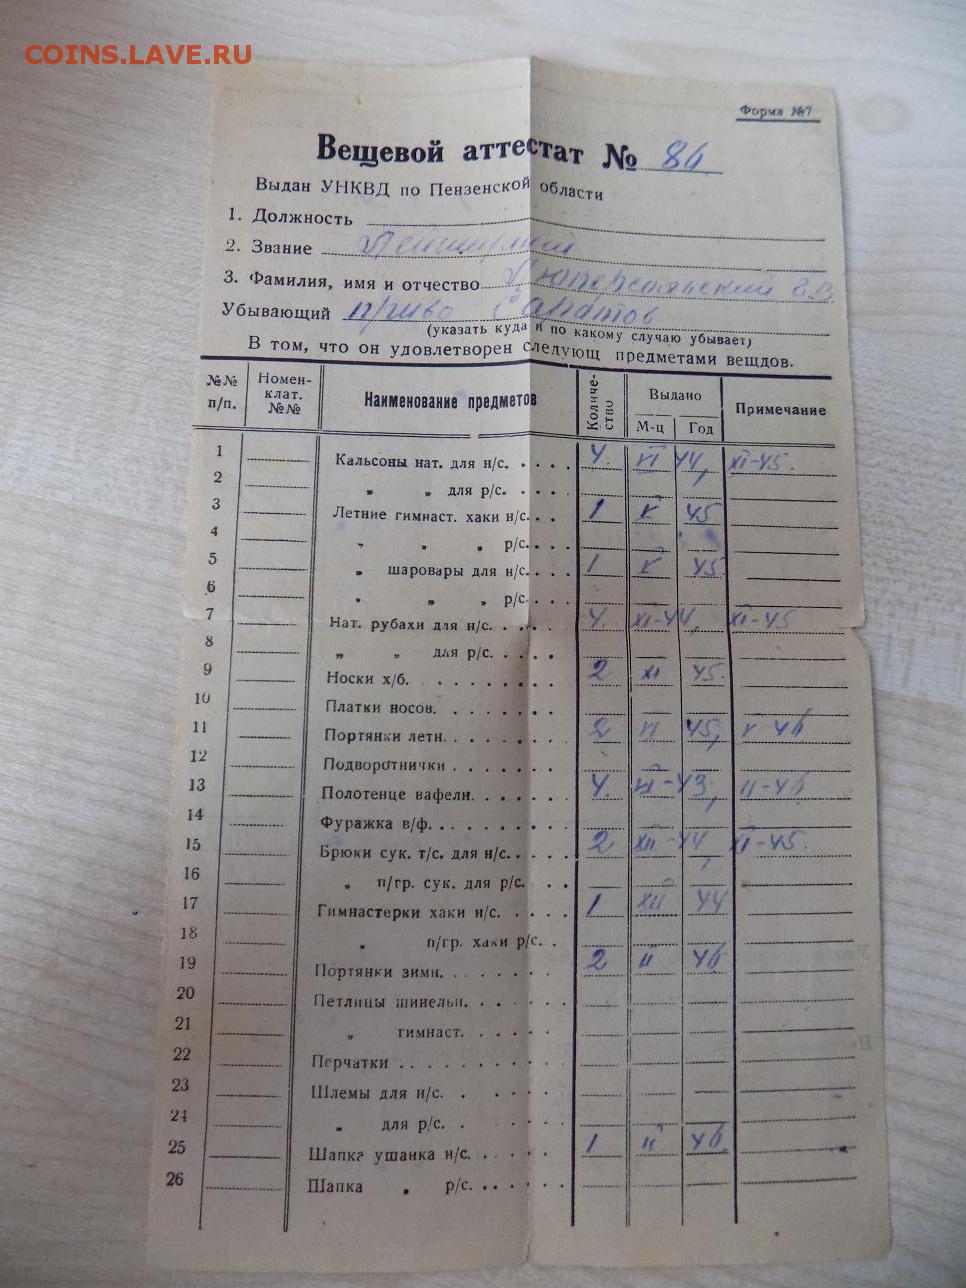 COINS.LAVE.RU
Форма №7
Вещевой аттестат № 86
Выдан УНКВД по Пензенской области
1. Должность
2. Звание
3. Фамилия, имя и отчество
Убывающий Саратов
(указать куда и по какому случаю убывает)
В том, что он удовлетворен следующ предметами вещдов.
№№ п/п. Номен-клат. №№ Наименование предметов Количе-ство Выдано М-ц Год Примечание
1 Кальсоны нат. для н/с. 4. VI 44, XI-45.
2 " " для р/с.
3 Летние гимнаст. хаки н/с. 1 V 45
4 " " " р/с.
5 " шаровары для н/с. 1 V 45
6 " " " р/с.
7 Нат. рубахи для н/с. 4. XI-44, XI-45
8 " " для р/с.
9 Носки х/б. 2 XI 45.
10 Платки носов.
11 Портянки летн. 2 VI 45, V 46
12 Подворотнички
13 Полотенце вафельн. 4. VI-43, II-46
14 Фуражка в/ф.
15 Брюки сук. т/с. для н/с. 2 XII-44, XI-45.
16 " п/гр. сук. для р/с.
17 Гимнастерки хаки н/с. 1 XII 44
18 " п/гр. хаки р/с.
19 Портянки зимн. 2 II 46
20 Петлицы шинельн.
21 " гимнаст.
22 Перчатки
23 Шлемы для н/с.
24 " для р/с.
25 Шапка ушанка н/с. 1 II 46.
26 Шапка " р/с.